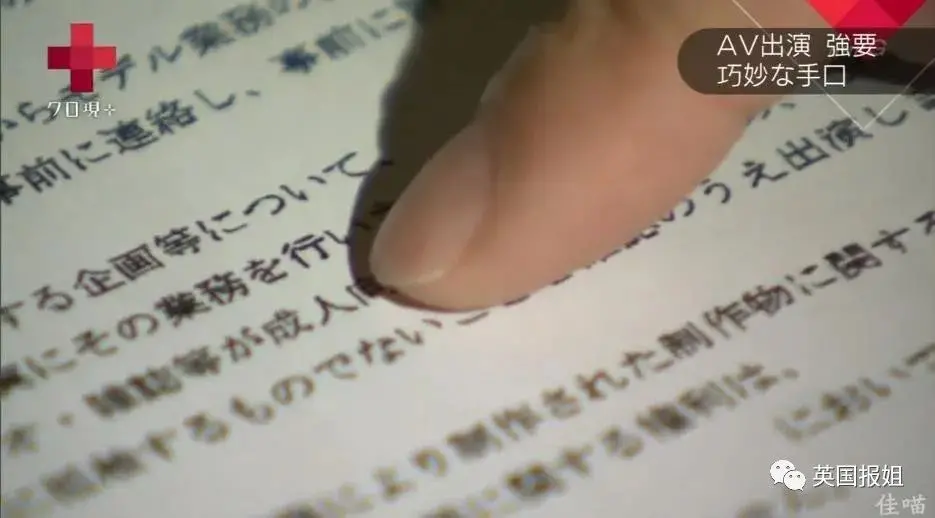 AV出演 強要
巧妙な手口
クロ現+
らモデル業務の
事前に
事前に連絡し、
する企画等について、
にその業務を行い
オ・雑誌等が成人向
するものでないこ
のうえ出演し
により制作された制作物に関する
に関する権利は、
において
英国报姐
佳喵